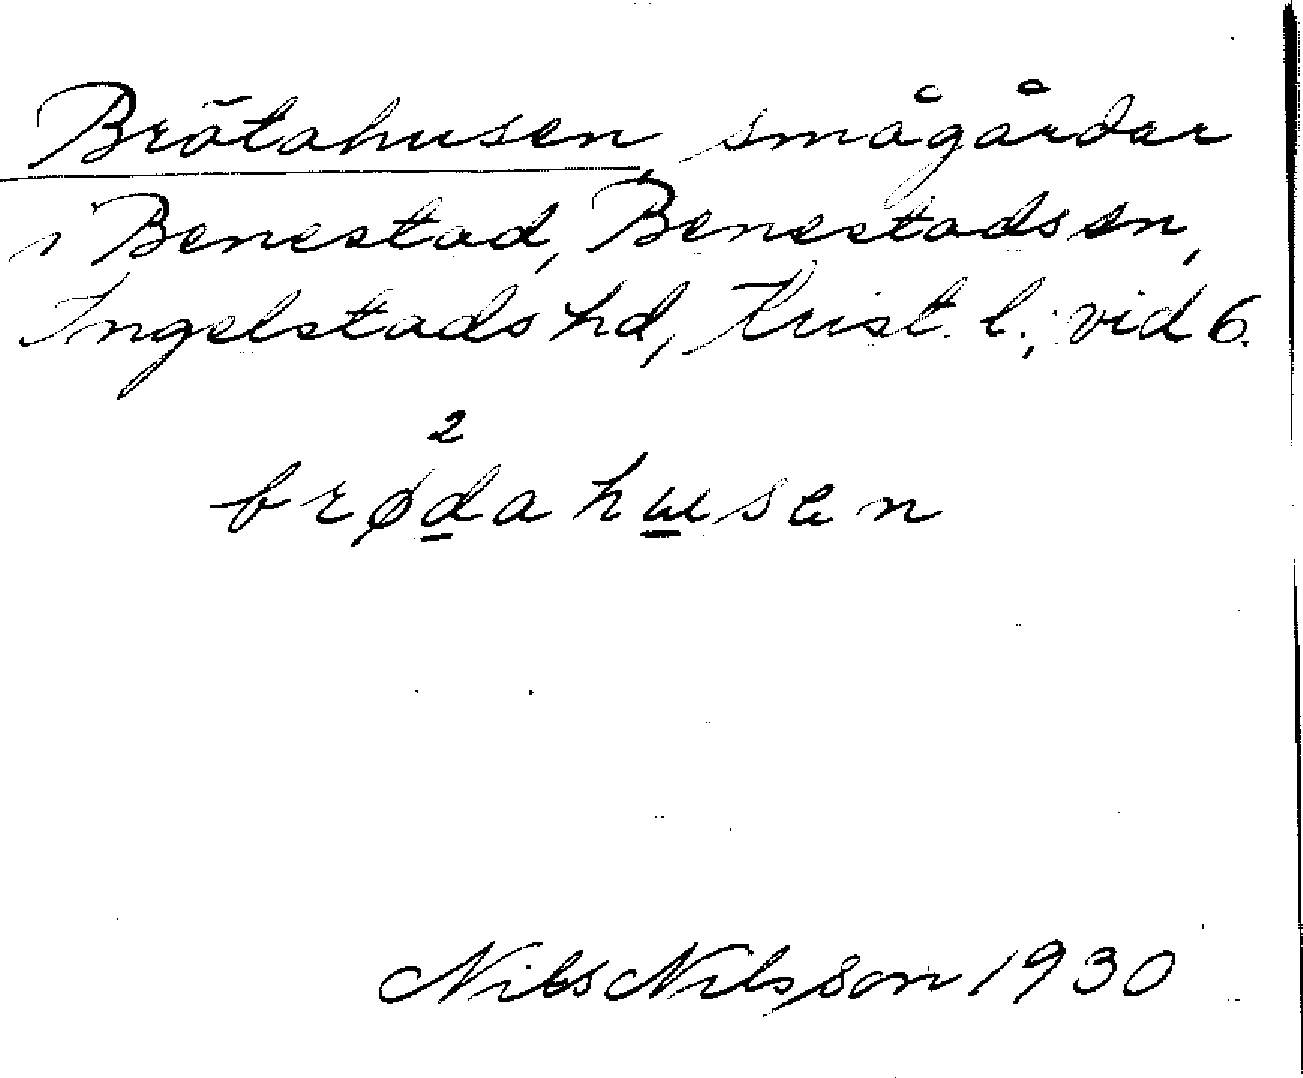 Brötahusen, smågårdar
i Benestad, Benestads sn,
Ingelstads hd, Krist. l.; vid 6.
2
brødahusen
Nils Nilsson 1930